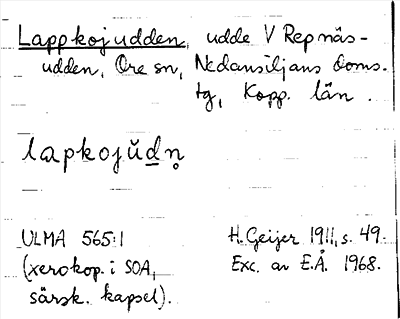 Lappkojudden, udde V Repnäs-
udden, Ore sn, Nedansiljans doms.
tg, Kopp. län.
lapkojŭdn̥
ULMA 565:1
(xerokop. i SOA,
särsk. kapsel).
H. Geijer 1911, s. 49.
Exc. av E.Å. 1968.